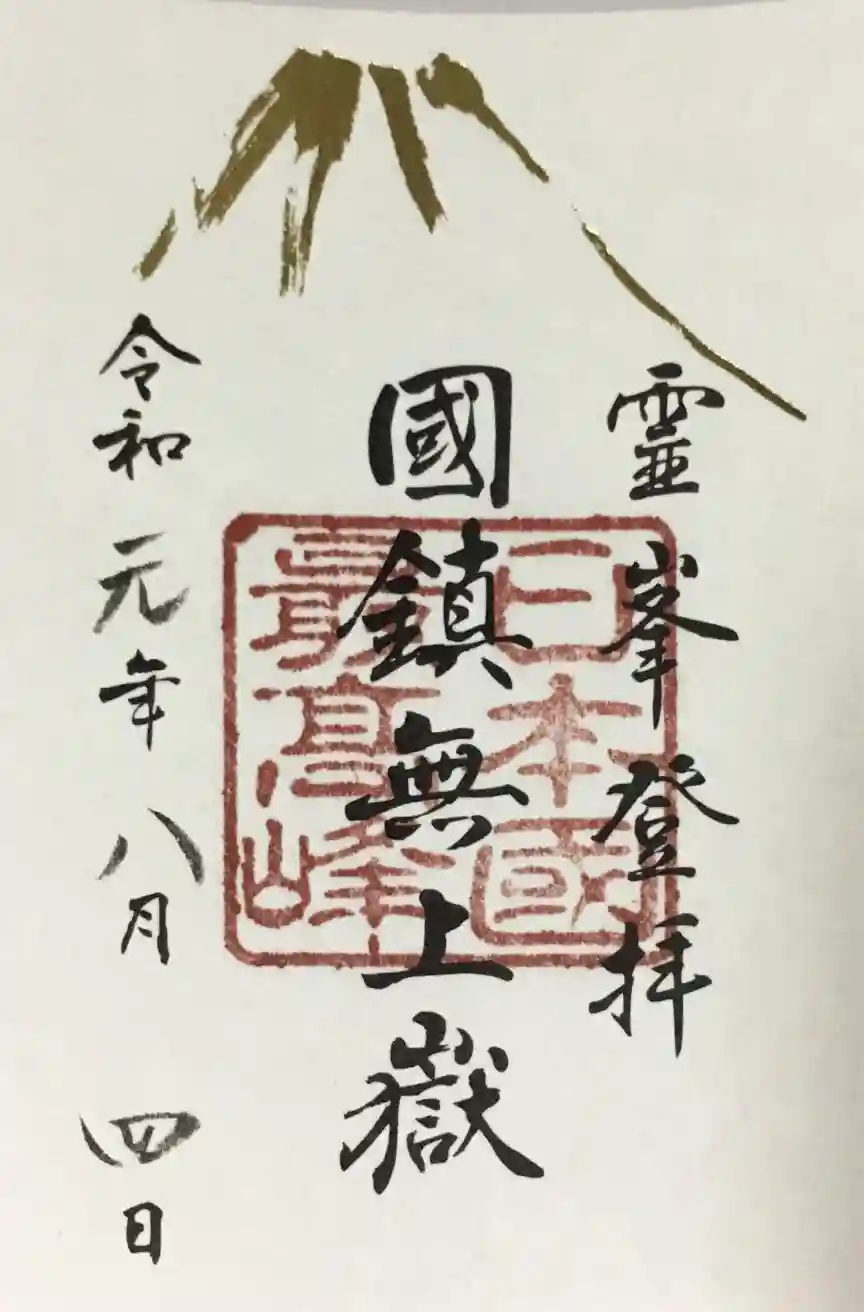 靈峯登拝
國鎮無上嶽
日本國
最高峰
令和元年八月四日